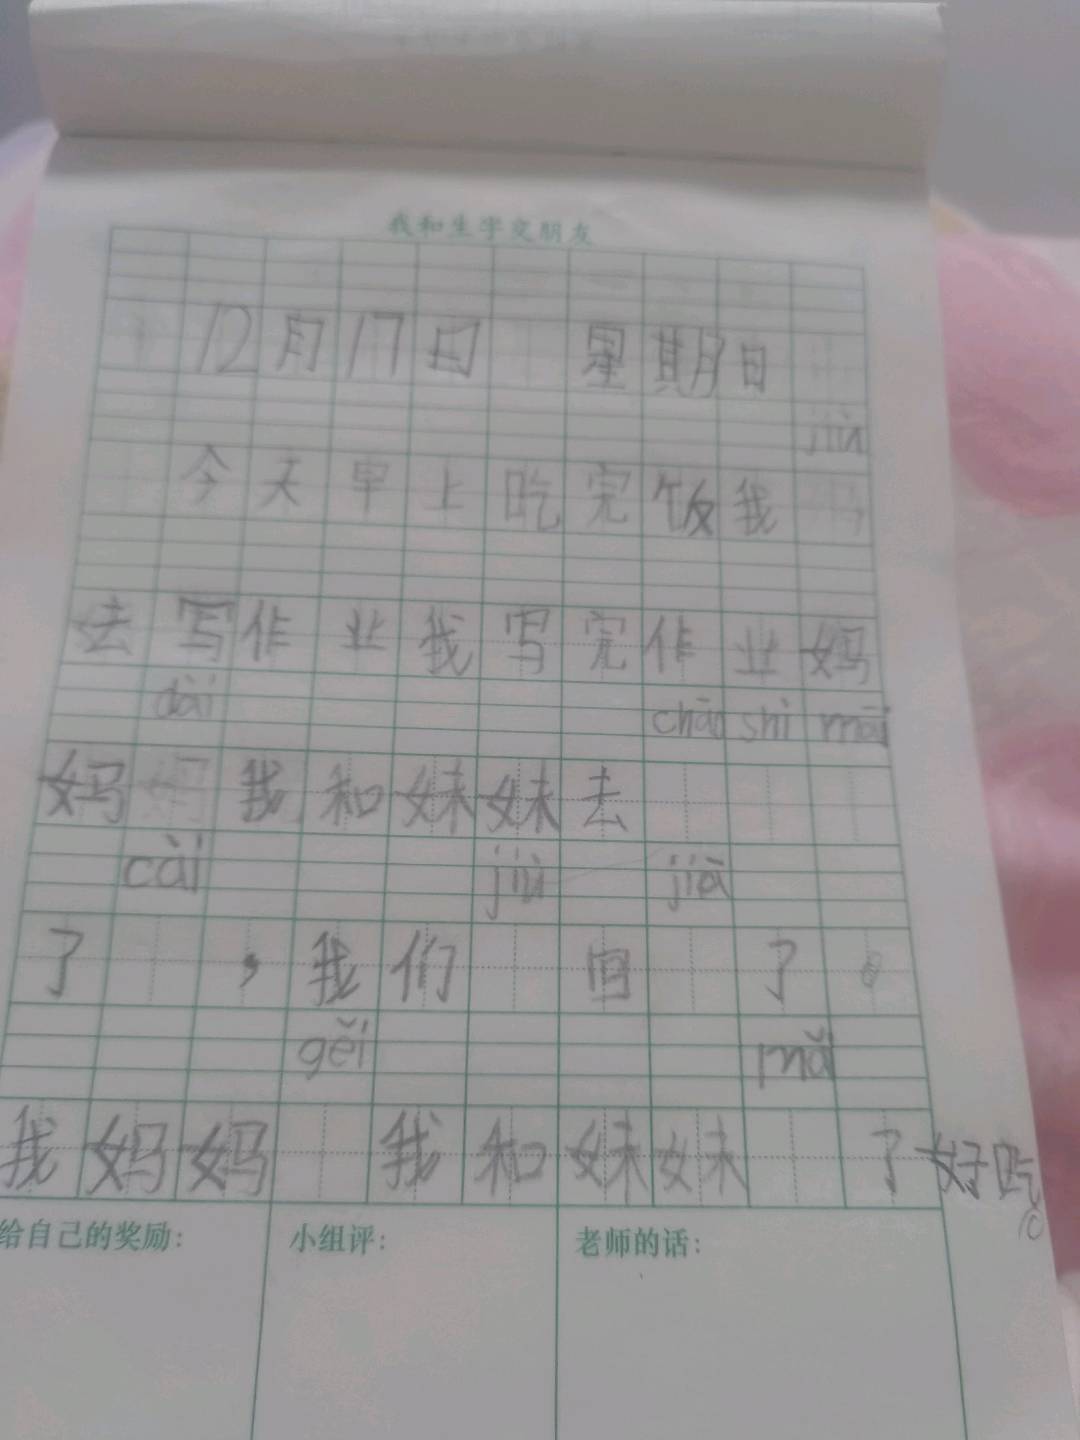 我和生字交朋友
12月17日 星期日
jiù
今天早上吃完饭我
去写作业我写完作业妈
dài chāo shì mǎi
妈 我和妹妹去
cài jiù jiā
了 ，我们 回 了。
gěi mǎi
我妈妈 我和妹妹 了好吃
给自己的奖励： 小组评： 老师的话：